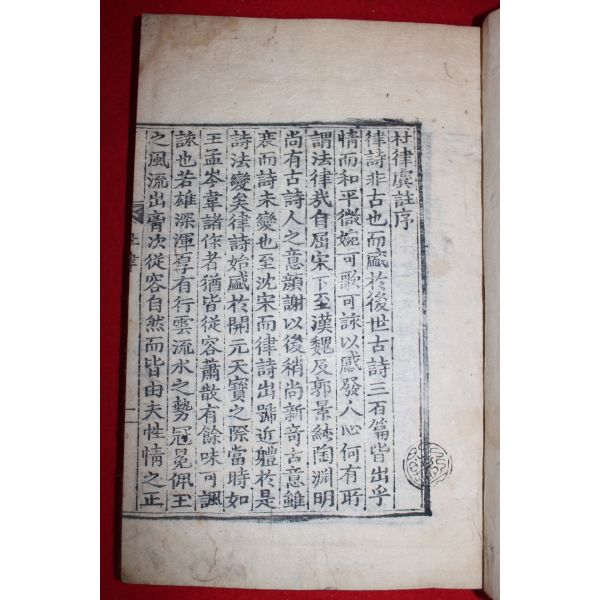 杜律虞註序
律詩非古也而盛於後世古詩三百篇皆出乎
情而和平微婉可歌可詠以感發人心何有所
謂法律哉自屈宋下至漢魏及郭景純陶淵明
尚有古詩人之意顔謝以後稍尚新竒古意雖
衰而詩未變也至沈宋而律詩出號近體於是
詩法變矣律詩始盛於開元天寶之際當時如
王孟岑韋諸作者猶皆從容蕭散有餘味可諷
詠也若雄深渾厚有行雲流水之勢冠冕佩玉
之風流出胷次從容自然而皆由夫性情之正
杜律
一